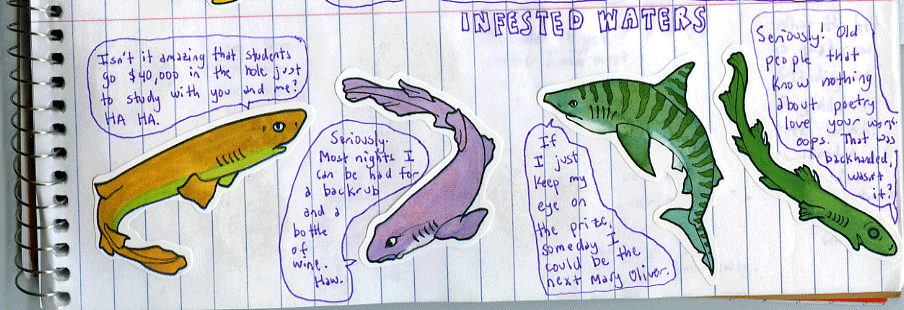 INFESTED WATERS
Isn't it amazing that students
go $40,000 in the hole just
to study with you and me?
HA HA.
Seriously.
Most nights I
can be had for
a backrub
and a
bottle
of
wine.
Haw.
If
I just
keep my
eye on
the prize,
someday I
could be the
next Mary Oliver.
Seriously! Old
people that
know nothing
about poetry
love your work.
oops. That was
backhanded,
wasn't
it?